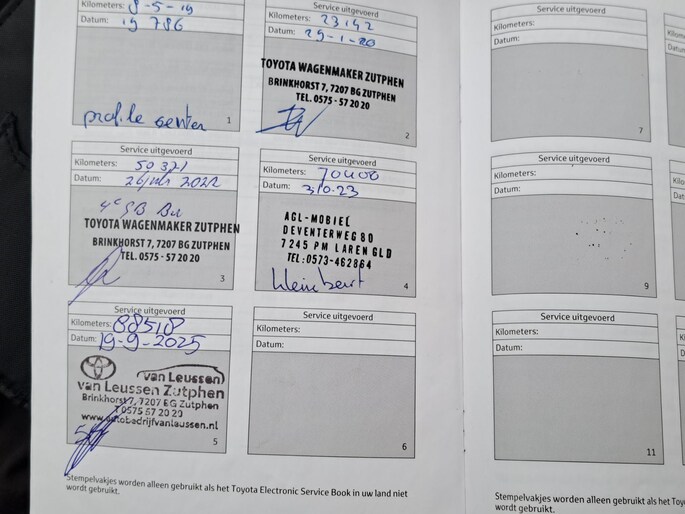 Service uitgevoerd
Kilometers: 8-5-19
Datum: 19 786
profile center
1
Service uitgevoerd
Kilometers: 23142
Datum: 29-1-20
TOYOTA WAGENMAKER ZUTPHEN
BRINKHORST 7, 7207 BG ZUTPHEN
TEL. 0575 - 57 20 20
2
Service uitgevoerd
Kilometers: 50321
Datum: 2022
TOYOTA WAGENMAKER ZUTPHEN
BRINKHORST 7, 7207 BG ZUTPHEN
TEL. 0575 - 57 20 20
3
Service uitgevoerd
Kilometers: 70400
Datum: 3.10.23
AGL-MOBIEL
DEVENTERWEG 80
7245 PM LAREN GLD
TEL: 0573-462864
kleine beurt
4
Service uitgevoerd
Kilometers: 88518
Datum: 19-9-2025
van Leussen
van Leussen Zutphen
Brinkhorst 7, 7207 BG Zutphen
T 0575 57 20 20
www.autobedrijfvanleussen.nl
5
Service uitgevoerd
Kilometers:
Datum:
6
Stempelvakjes worden alleen gebruikt als het Toyota Electronic Service Book in uw land niet
wordt gebruikt.
Service uitgevoerd
Kilometers:
Datum:
7
Service uitgevoerd
Kilometers:
Datum:
9
Service uitgevoerd
Kilometers:
Datum:
11
Stempelvakjes worden alleen gebruikt als het Toyota
wordt gebruikt.